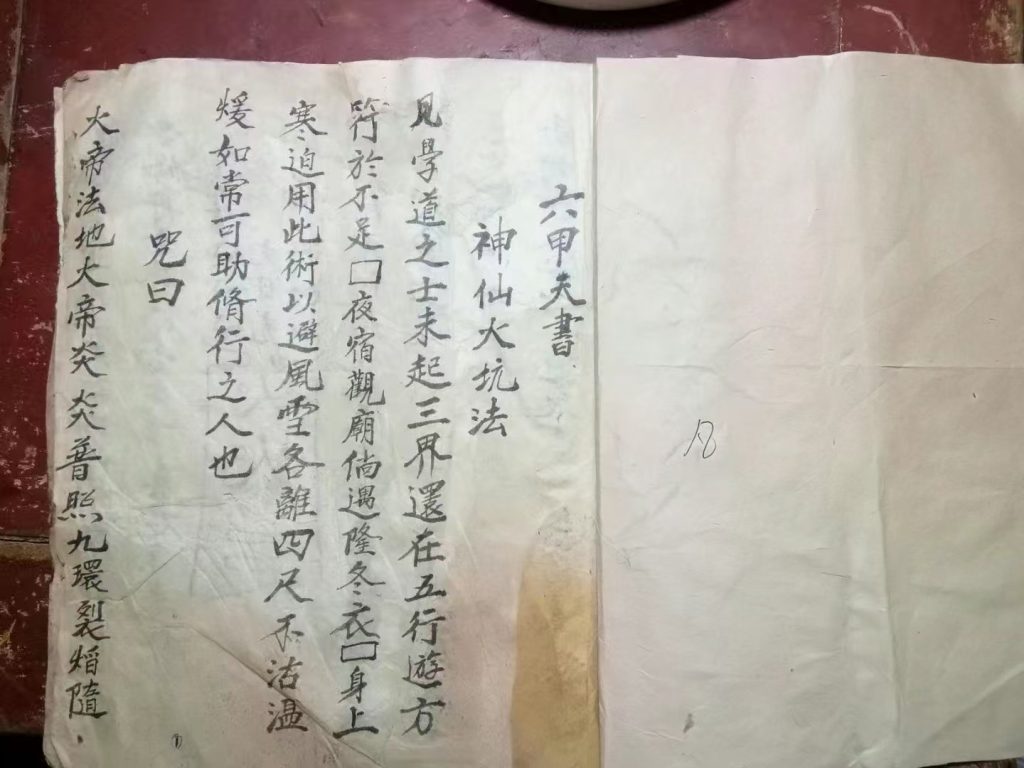 凡
六甲天書
神仙火坑法
凡學道之士未起三界還在五行遊方
符於不足□夜宿觀廟倘遇隆冬衣□身上
寒迫用此術以避風雪各離四尺不沾溫
煖如常可助脩行之人也
咒曰
火帝法地大帝炎炎普照九環裂焰隨
1